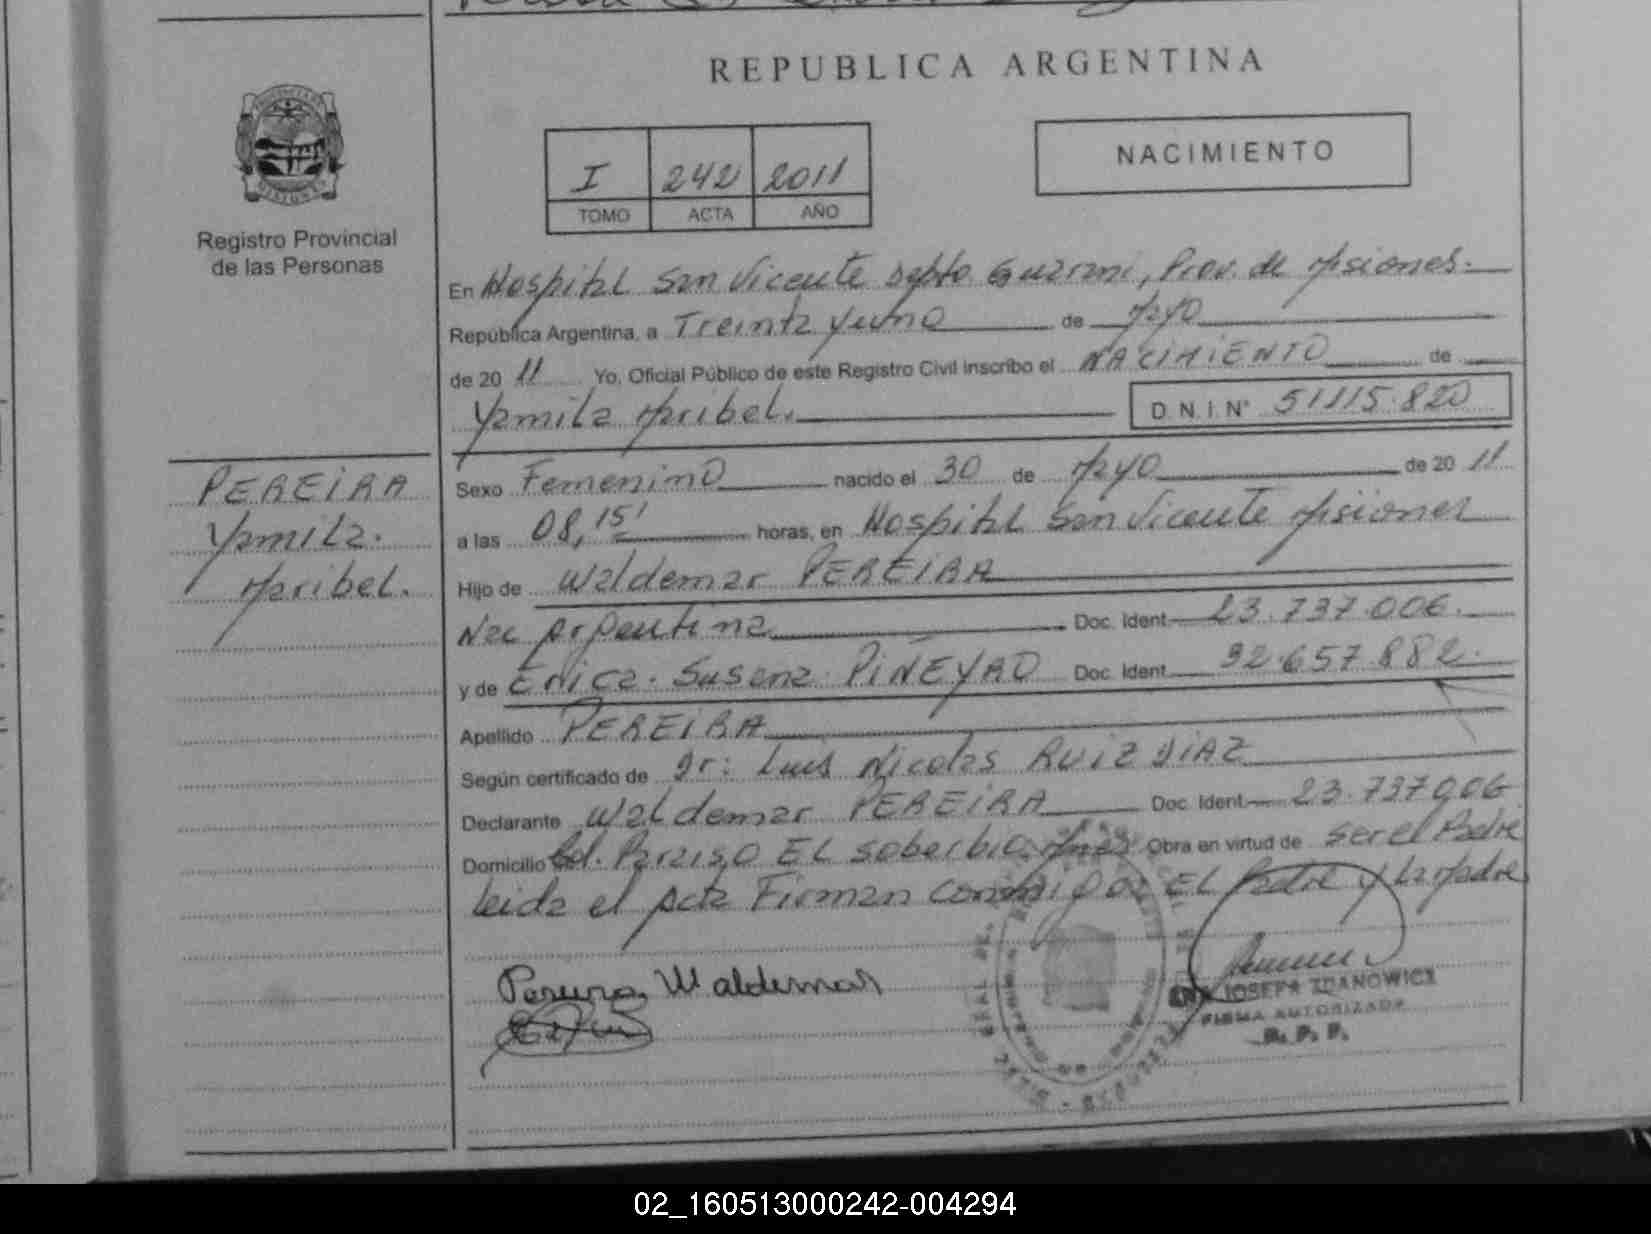 REPUBLICA ARGENTINA
PROVINCIA DE
MISIONES
Registro Provincial
de las Personas
I 242 2011
TOMO ACTA AÑO
NACIMIENTO
En Hospital San Vicente Depto. Guarani, Prov. de Misiones.
República Argentina, a Treinta y uno de Mayo
de 20 11 Yo, Oficial Público de este Registro Civil inscribo el NACIMIENTO de
Yamila Maribel. D.N.I. N° 51115.820
PEREIRA
Yamila.
Maribel.
Sexo Femenino nacido el 30 de Mayo de 20 11
a las 08,15' horas, en Hospital San Vicente Misiones
Hijo de Waldemar PEREIRA
Nac Argentina Doc. Ident. 23.737.006.
y de Erica. Susana PIÑEYRO Doc. Ident. 32.657.882.
Apellido PEREIRA
Según certificado de Dr: Luis Nicolas RUIZ DIAZ
Declarante Waldemar PEREIRA Doc. Ident. 23.737.006
Domicilio Col. Paraiso EL Soberbio Mnes Obra en virtud de Ser el Padre
leida el Acta Firman conmigo EL Padre y La Madre
Pereira Waldemar
JOSEFA ZDANOWICZ
FIRMA AUTORIZADA
R. P. P.
02_160513000242-004294